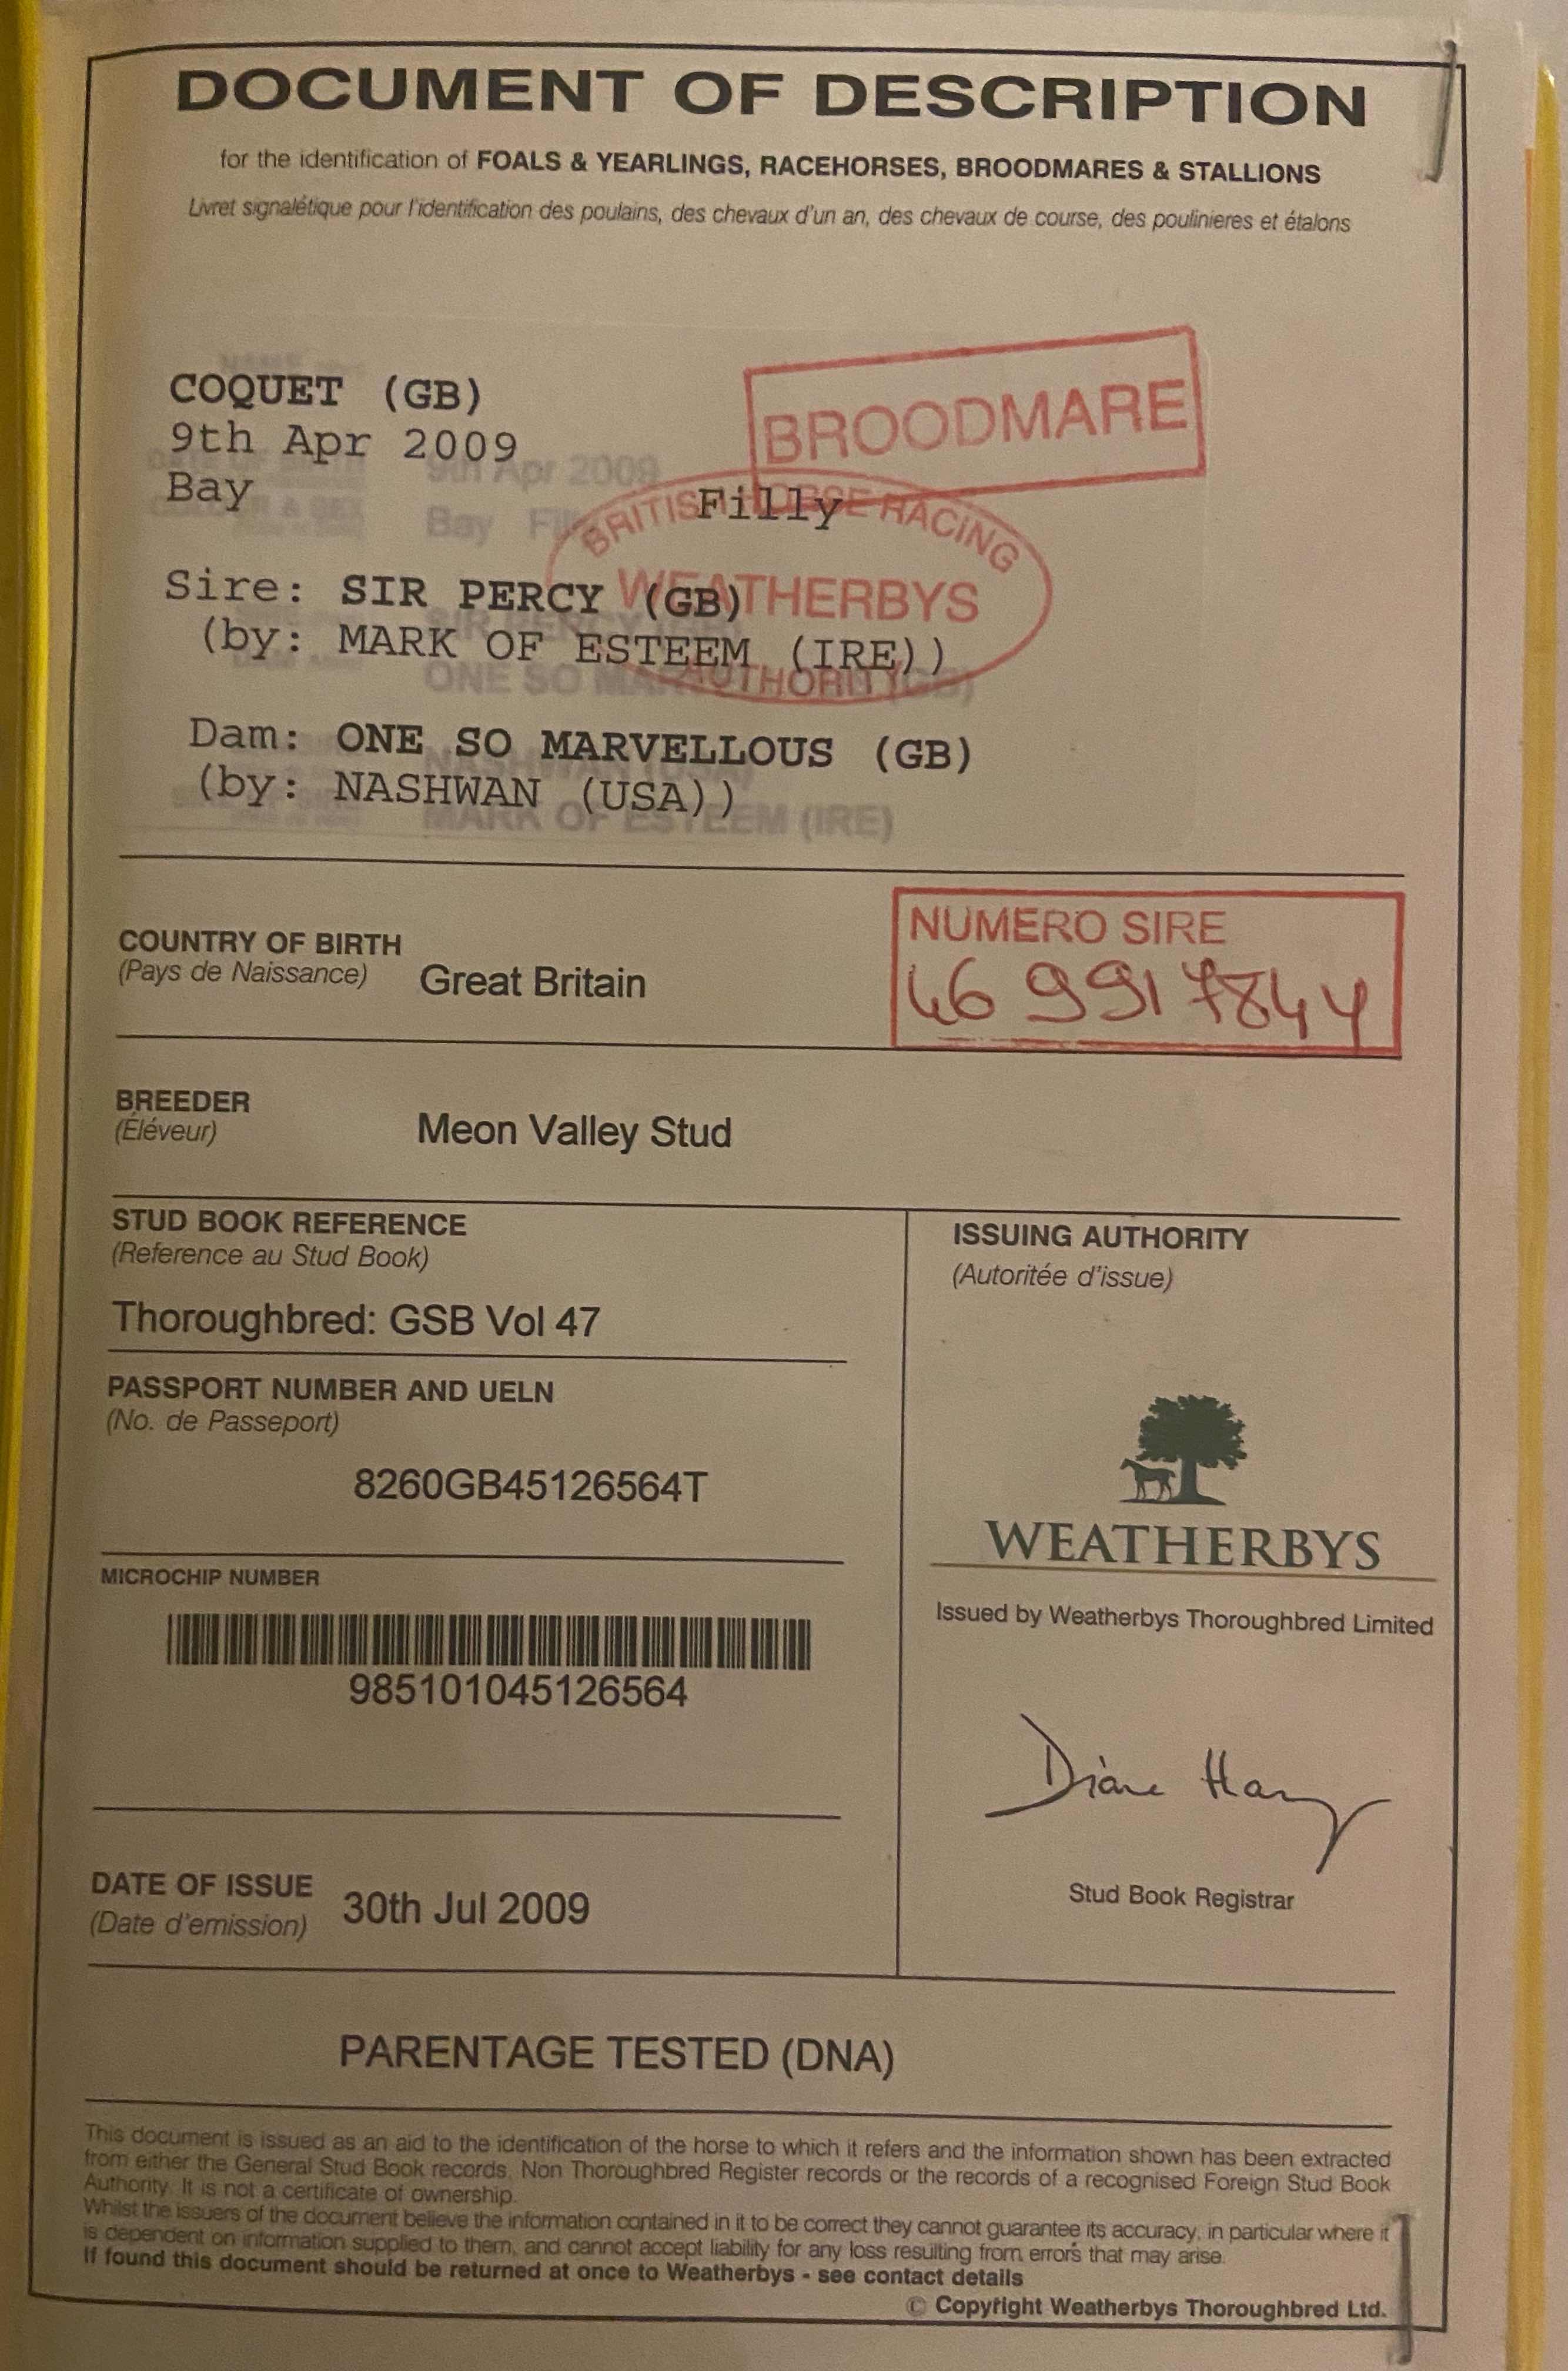 DOCUMENT OF DESCRIPTION
for the identification of FOALS & YEARLINGS, RACEHORSES, BROODMARES & STALLIONS
Livret signalétique pour l'identification des poulains, des chevaux d'un an, des chevaux de course, des poulinieres et étalons
COQUET (GB)
BROODMARE
9th Apr 2009
9th Apr 2009
Bay Filly
Bay
BRITISH HORSE RACING
WEATHERBYS
AUTHORITY
Sire: SIR PERCY (GB)
(by: MARK OF ESTEEM (IRE))
Dam: ONE SO MARVELLOUS (GB)
(by: NASHWAN (USA))
MARK OF ESTEEM (IRE)
COUNTRY OF BIRTH
(Pays de Naissance)
Great Britain
NUMERO SIRE
46 991 784 Y
BREEDER
(Éléveur)
Meon Valley Stud
STUD BOOK REFERENCE
(Reference au Stud Book)
Thoroughbred: GSB Vol 47
PASSPORT NUMBER AND UELN
(No. de Passeport)
8260GB45126564T
MICROCHIP NUMBER
985101045126564
DATE OF ISSUE
(Date d'emission)
30th Jul 2009
ISSUING AUTHORITY
(Autoritée d'issue)
WEATHERBYS
Issued by Weatherbys Thoroughbred Limited
Diane
Stud Book Registrar
PARENTAGE TESTED (DNA)
This document is issued as an aid to the identification of the horse to which it refers and the information shown has been extracted
from either the General Stud Book records, Non Thoroughbred Register records or the records of a recognised Foreign Stud Book
Authority. It is not a certificate of ownership.
Whilst the issuers of the document believe the information contained in it to be correct they cannot guarantee its accuracy, in particular where it
is dependent on information supplied to them, and cannot accept liability for any loss resulting from errors that may arise.
If found this document should be returned at once to Weatherbys - see contact details
© Copyright Weatherbys Thoroughbred Ltd.